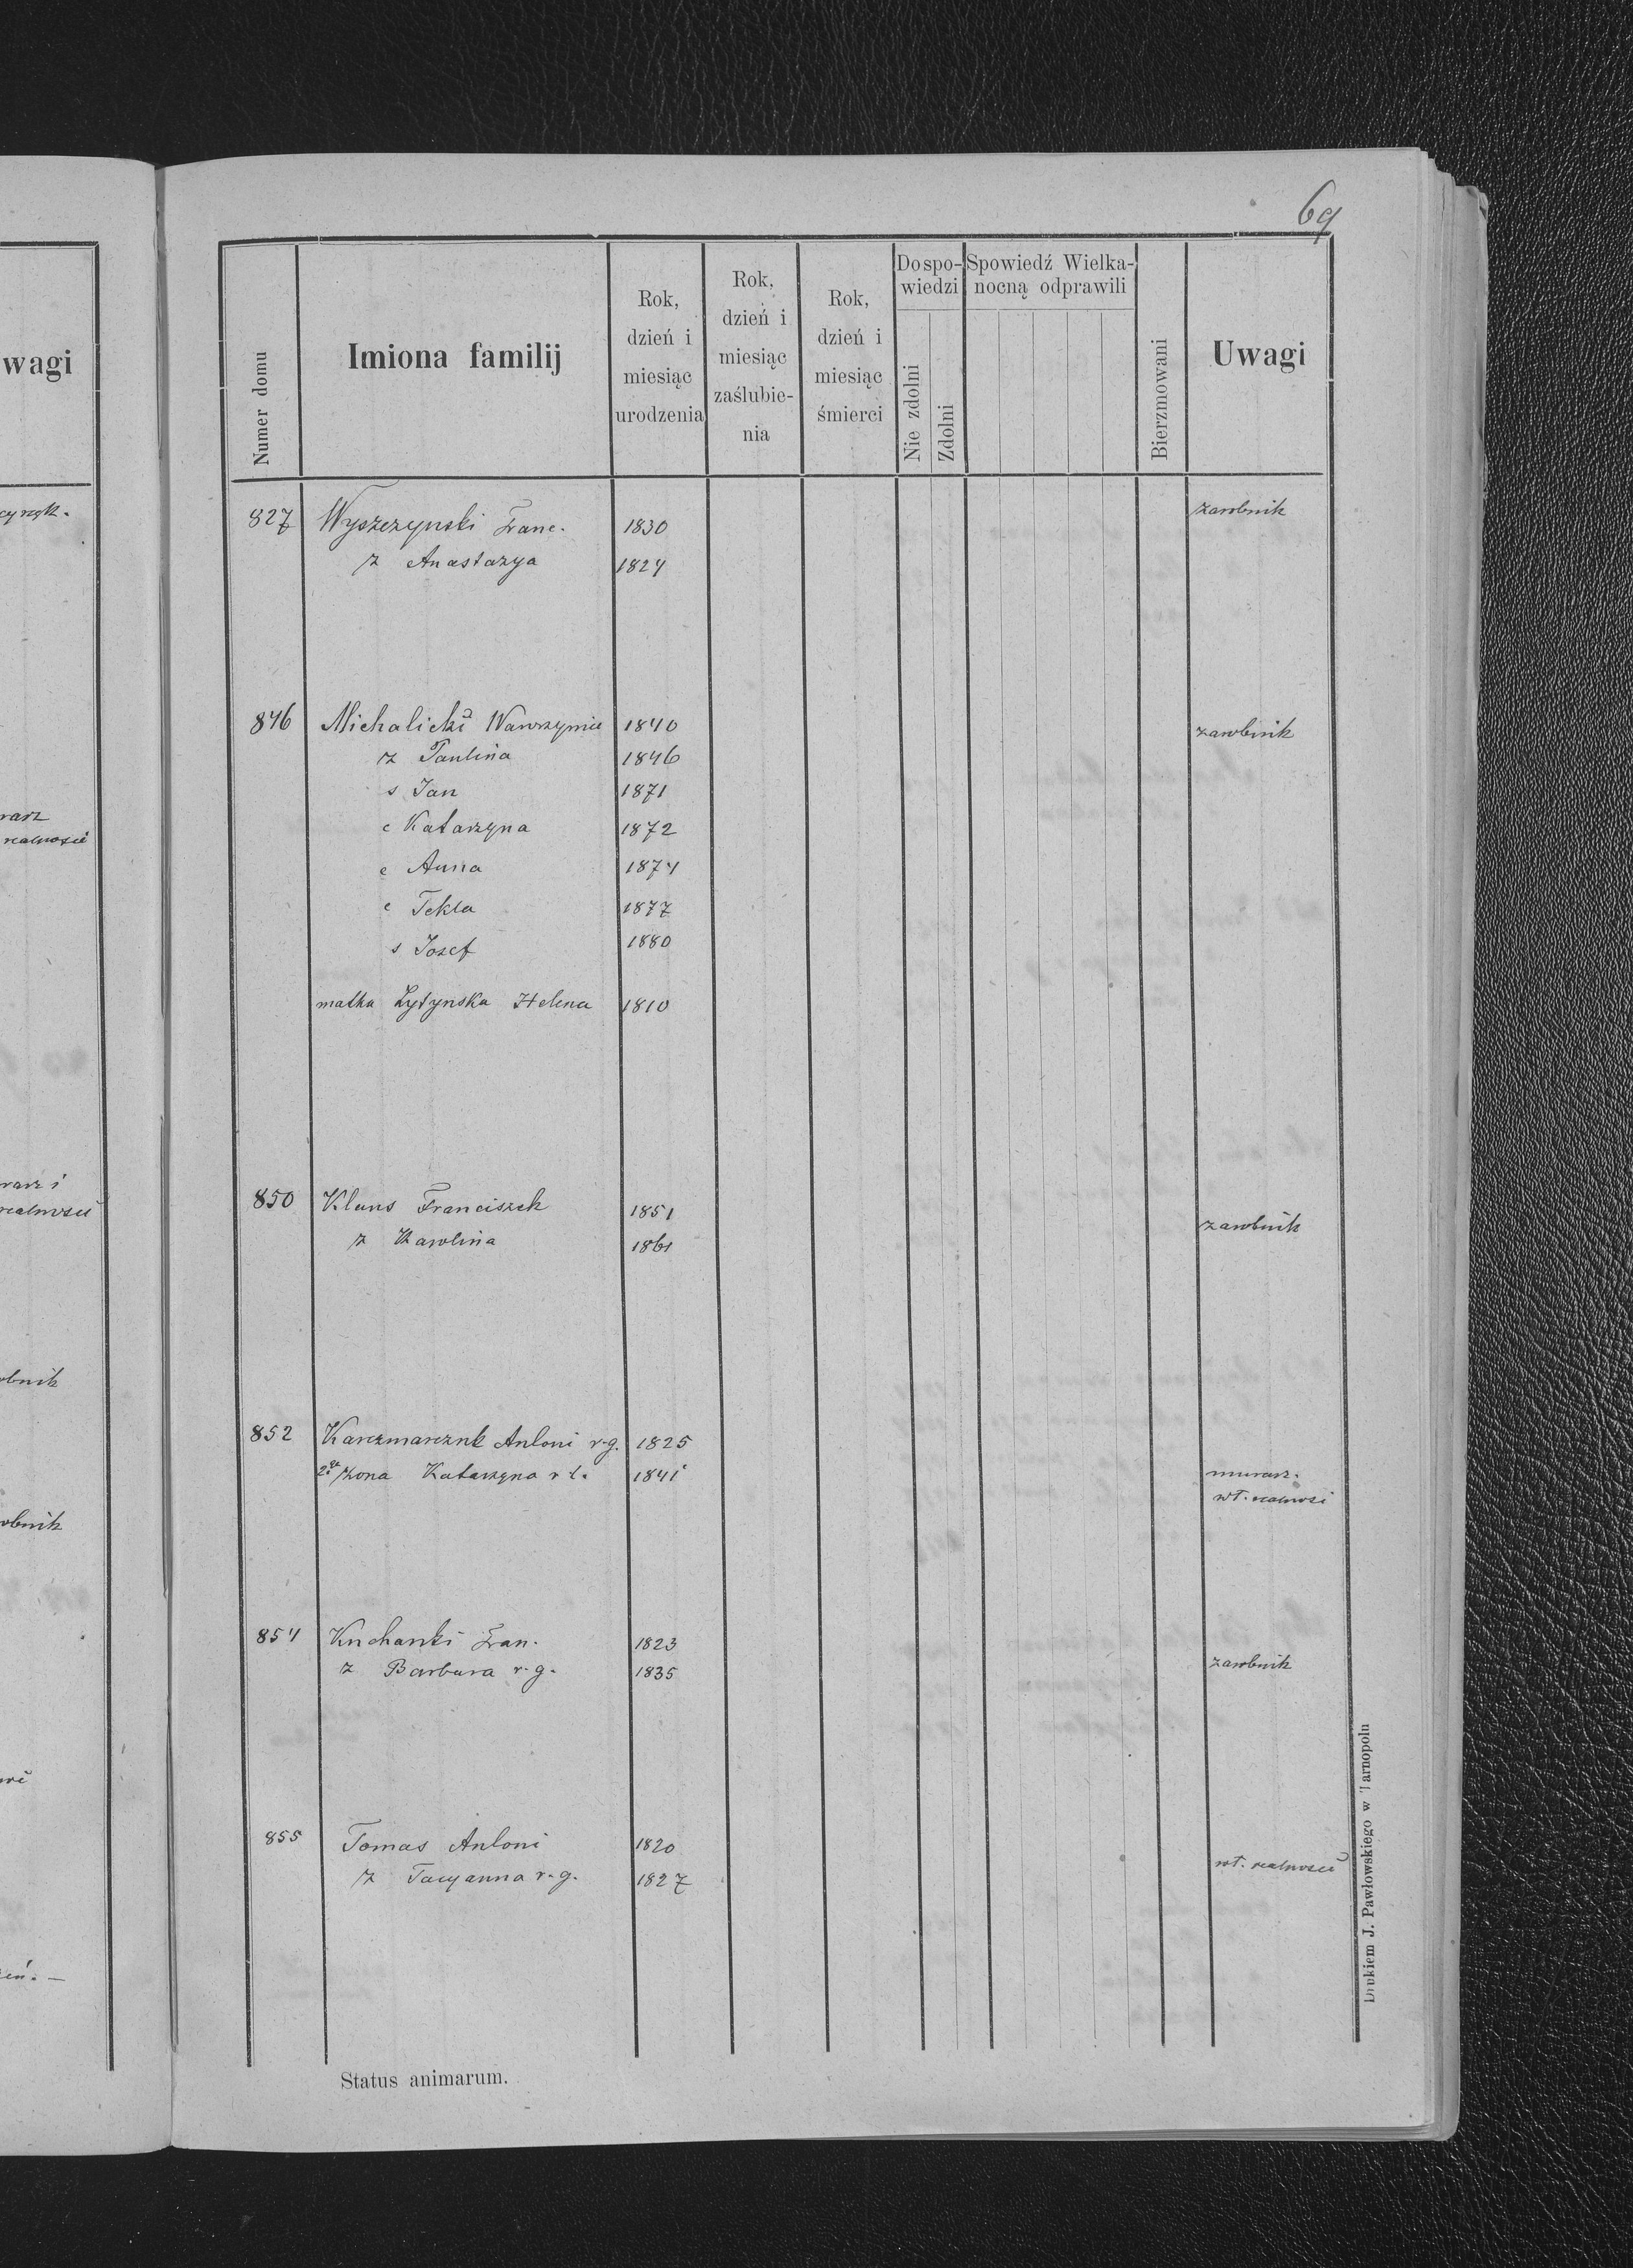 69
wagi
Numer domu
Imiona familij
Rok, dzień i miesiąc urodzenia
Rok, dzień i miesiąc zaślubienia
Rok, dzień i miesiąc śmierci
Do spowiedzi
Nie zdolni
Zdolni
Spowiedź Wielkanocną odprawili
Bierzmowani
Uwagi
827 Wyszczynski Franc. 1830 zarobnik
z Anastazya 1824
846 Michalicki Wawrzyniec 1840 zarobnik
z Paulina 1846
s Jan 1871
c Katarzyna 1872
c Anna 1874
c Tekla 1877
s Josef 1880
matka Lytynska Helena 1810
850 Klans Franciszek 1851 zarobnik
z Karolina 1861
852 Karczmarczuk Antoni r-g. 1825
2ga żona Katarzyna r l. 1841 murarz.
wł. realnosci
854 Kucharski Fran. 1823
z Barbara r-g. 1835 zarobnik
855 Tomas Antoni 1820
z Tacyanna r-g. 1827 wł. realnosci
Status animarum.
Drukiem J. Pawłowskiego w Tarnopolu